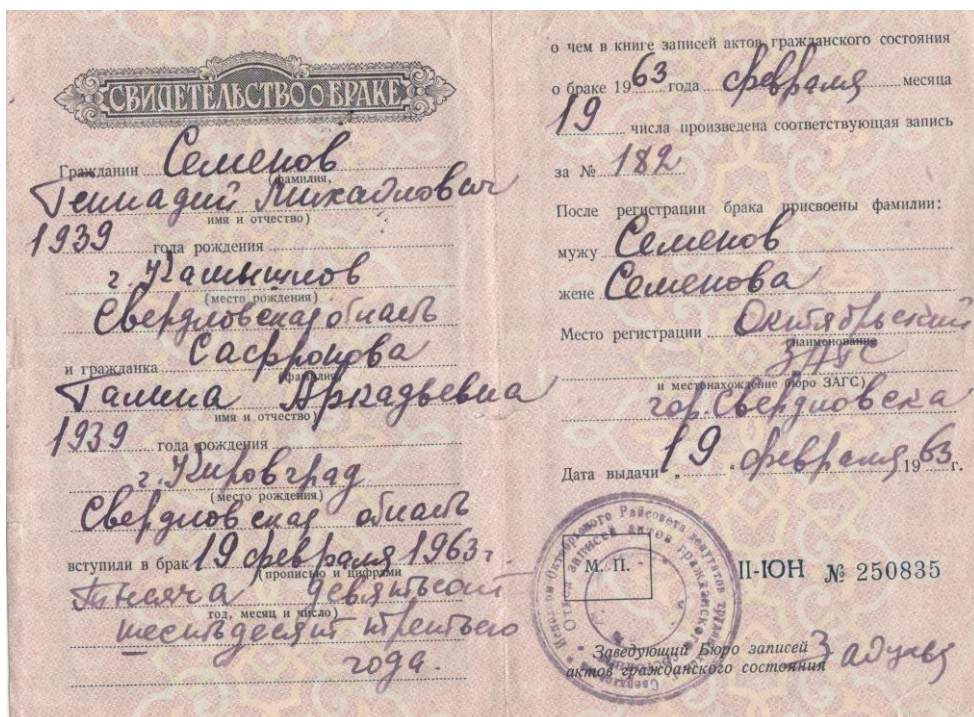 СВИДЕТЕЛЬСТВО О БРАКЕ
Гражданин Семенов
(фамилия,
Геннадий Михайлович
имя и отчество)
1939 года рождения
г. Камышлов
(место рождения)
Свердловская область
и гражданка Сафронова
(фамилия,
Галина Аркадьевна
имя и отчество)
1939 года рождения
г. Кировград
(место рождения)
Свердловская область
вступили в брак 19 февраля 1963 г
(прописью и цифрами
Тысяча девятьсот
год, месяц и число)
шестьдесят третьего
года.
о чем в книге записей актов гражданского состояния
о браке 1963 года февраля месяца
19 числа произведена соответствующая запись
за № 182
После регистрации брака присвоены фамилии:
мужу Семенов
жене Семенова
Место регистрации Октябрьский
(наименование
ЗАГС
и местонахождение бюро ЗАГС)
гор. Свердловска
Дата выдачи „19 “ февраля 1963 г.
М. П.
II-ЮН № 250835
Заведующий Бюро записей
актов гражданского состояния